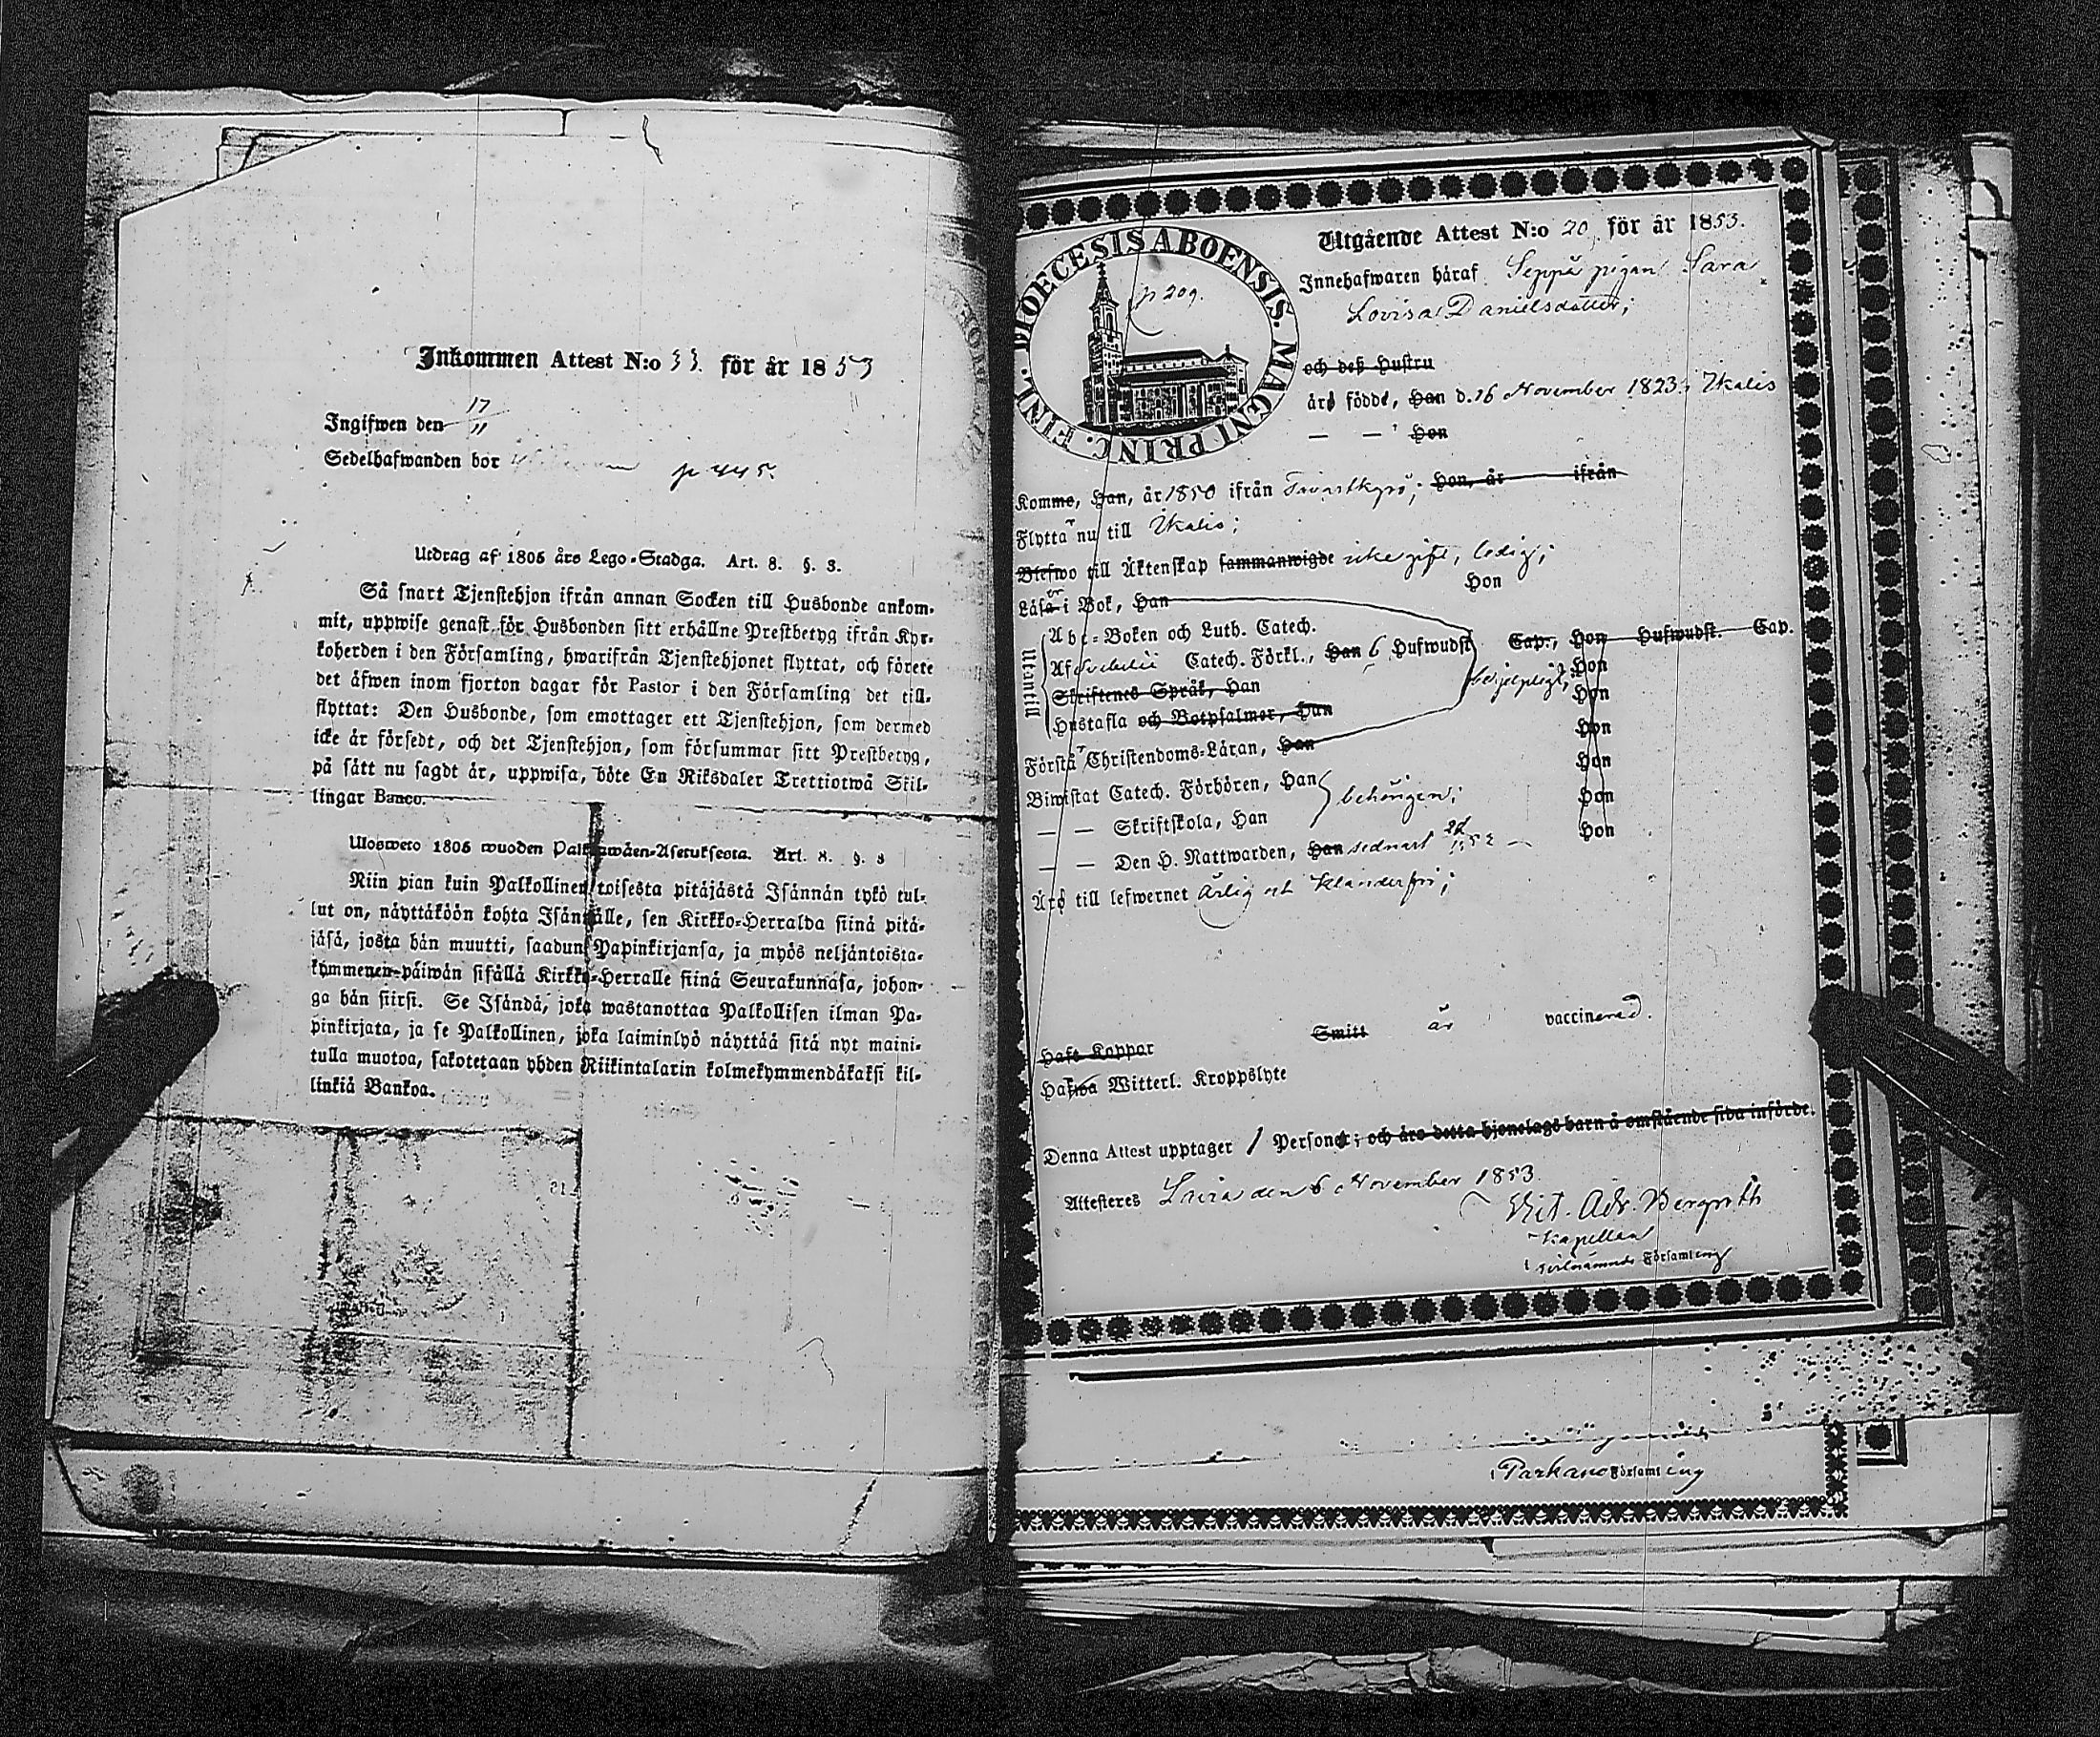 Inkommen Attest N:o 33. för år 1853
Ingifwen den 17/11
Sedelhafwanden bor p 445.
Utdrag af 1805 års Lego-Stadga. Art. 8. §. 3.
Så snart Tjenstehjon ifrån annan Socken till Husbonde ankom-
mit, uppwise genast för Husbonden sitt erhållne Prestbetyg ifrån Kyr-
koherden i den Församling, hwarifrån Tjenstehjonet flyttat, och förete
det äfwen inom fjorton dagar för Pastor i den Församling det till-
flyttat: Den Husbonde, som emottager ett Tjenstehjon, som dermed
icke är försedt, och det Tjenstehjon, som försummar sitt Prestbetyg,
på sätt nu sagdt är, uppwisa, böte En Riksdaler Trettiotwå Skil-
lingar Banco.
Ulosweto 1805 wuoden Palkkawäen-Asetuksesta. Art. 8. §. 3
Niin pian kuin Palkollinen toisesta pitäjästä Isännän tykö tul-
lut on, näyttäköön kohta Isännälle, sen Kirkko-Herralda siinä pitä-
jäsä, josta hän muutti, saadun Papinkirjansa, ja myös neljäntoista-
kymmenen-päiwän sisällä Kirkko-Herralle siinä Seurakunnasa, johon-
ga hän siirsi. Se Isändä, joka wastanottaa Palkollisen ilman Pa-
pinkirjata, ja se Palkollinen, joka laiminlyö näyttää sitä nyt maini-
tulla muotoa, sakotetaan yhden Riikintalarin kolmekymmendäkaksi kil-
linkiä Bankoa.
DIOECESIS ABOENSIS. MAGNI PRINC. FINL.
p 209.
Utgående Attest N:o 20, för år 1853.
Innehafwaren häraf Seppä pigan Sara
Lovisa Danielsdotter;
och deß Hustru
äro födde, Han d. 16 November 1823 i Ikalis
— — Hon
Komme, Han, år 1850 ifrån Tavastkyrö; Hon, år ifrån
Flyttar nu till Ikalis;
Blefwo till Äktenskap sammanwigde icke gift, ledig;
Läser i Bok, Han Hon
Utantill
Abc-Boken och Luth. Catech.
Af Svebelii Catech. Förkl., Han 6 Hufwudst. Cap., Hon Hufwudst. Cap.
Skriftenes Språk, Han Hon
Hustafla och Botpsalmer, Han Hon
Förstår Christendoms-Läran, Han Hon
Biwistat Catech. Förhören, Han behörigen; Hon
— — Skriftskola, Han Hon
— — Den H. Nattwarden, Han sednast Hon
Äro till lefwernet ärlig och klanderfri;
Haft Koppor Smitt är vaccinerad.
Hafwa Witterl. Kroppslyte
Denna Attest upptager 1 Person; och äro detta hjonelags barn å omstående sida införde.
Attesteras Lavia den 6 November 1853.
Vict. Adr. Bergroth
Kapellan
i förbenämnde Församling
i Parkano Församling